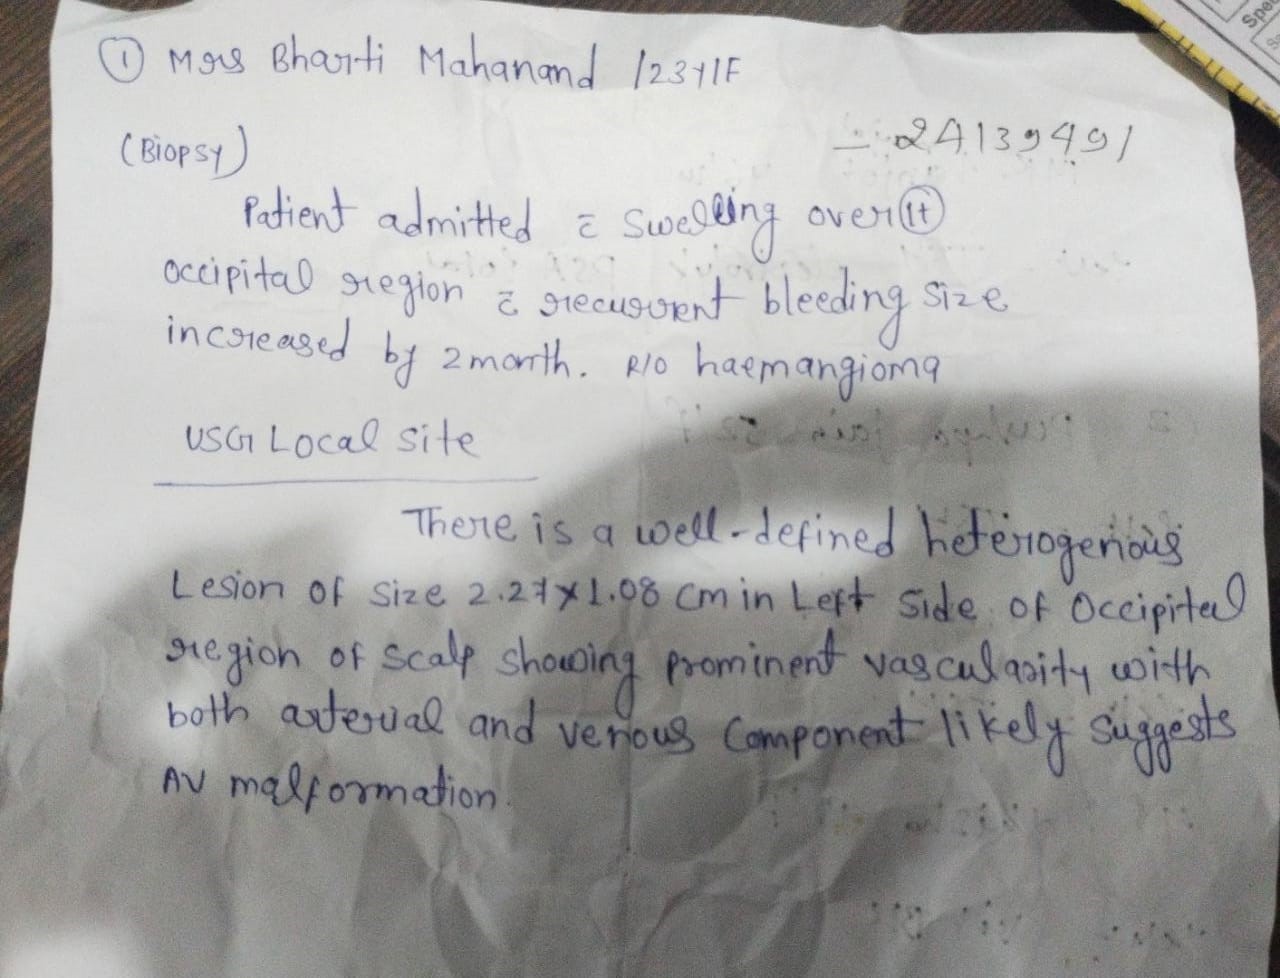 ① Mrs Bharti Mahanand /23Y/F
- 24139491
(Biopsy)
Patient admitted c̄ swelling over lt
occipital region c̄ recurrent bleeding size
increased by 2 month. R/O haemangioma
USG Local site
There is a well-defined heterogenious
Lesion of size 2.27x1.08 cm in Left side of Occipital
region of scalp showing prominent vascularity with
both arterial and venous component likely suggests
AV malformation.
Spe